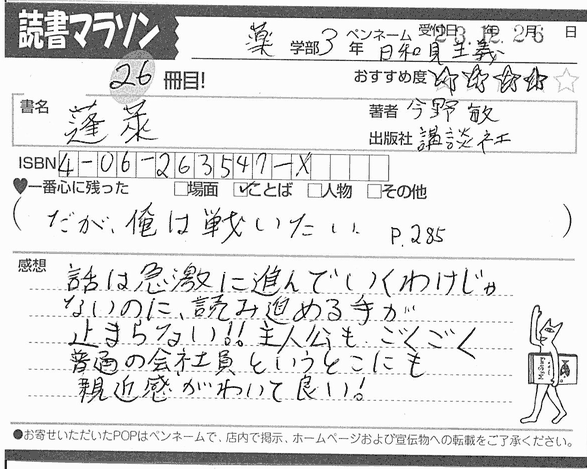 読書マラソン
薬 学部 3 年 ペンネーム 日和見主義 受付日 23年12月26日
26 冊目!
おすすめ度 ★★★★☆
書名 蓬莱
著者 今野敏
出版社 講談社
ISBN 4-06-263547-X
♥一番心に残った □場面 ☑ことば □人物 □その他
(だが、俺は戦いたい P.285)
感想
話は急激に進んでいくわけじゃ
ないのに、読み進める手が
止まらない!!主人公も ごくごく
普通の会社員というとこにも
親近感がわいて良い!
●お寄せいただいたPOPはペンネームで、店内で掲示、ホームページおよび宣伝物への転載をご了承ください。